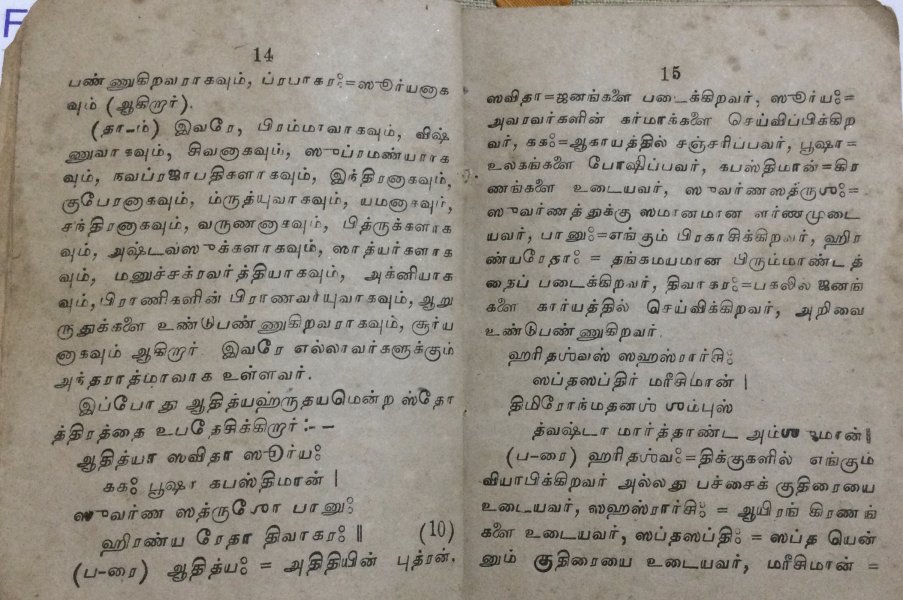 F
14
பண்ணுகிறவராகவும், ப்ரபாகரஃ=ஸூர்யனாக
வும் (ஆகிறார்).
(தா-ம்) இவரே, பிரம்மாவாகவும், விஷ்
ணுவாகவும், சிவனாகவும், ஸுப்ரமண்யராக
வும், நவப்ரஜாபதிகளாகவும், இந்திரனாகவும்,
குபேரனாகவும், ம்ருத்யுவாகவும், யமனாகவும்,
சந்திரனாகவும், வருணனாகவும், பித்ருக்களாக
வும், அஷ்டவஸுக்களாகவும், ஸாத்யர்களாக
வும், மனுச்சக்ரவர்த்தியாகவும், அக்னியாக
வும், பிராணிகளின் பிராணவாயுவாகவும், ஆறு
ருதுக்களை உண்டுபண்ணுகிறவராகவும், சூர்ய
னாகவும் ஆகிறார். இவரே எல்லாவர்களுக்கும்
அந்தராத்மாவாக உள்ளவர்.
இப்போது ஆதித்யஹ்ருதயமென்ற ஸ்தோ
த்திரத்தை உபதேசிக்கிறார்:--
ஆதித்யா ஸவிதா ஸூர்யஃ
ககஃ பூஷா கபஸ்திமான் |
ஸுவர்ண ஸத்ருஶோ பானுஃ
ஹிரண்ய ரேதா திவாகரஃ || (10)
(ப-ரை) ஆதித்யஃ = அதிதியின் புத்ரன்,
15
ஸவிதா=ஜனங்களை படைக்கிறவர், ஸூர்யஃ=
அவரவர்களின் கர்மாக்களை செய்விப்பிக்கிற
வர், ககஃ=ஆகாயத்தில் சஞ்சரிப்பவர், பூஷா=
உலகங்களை போஷிப்பவர், கபஸ்திமான்=கிர
ணங்களை உடையவர், ஸுவர்ணஸத்ருஶஃ=
ஸுவர்ணத்துக்கு ஸமானமான வர்ணமுடை
யவர், பானுஃ=எங்கும் பிரகாசிக்கிறவர், ஹிர
ண்யரேதாஃ = தங்கமயமான பிரும்மாண்டத்
தைப் படைக்கிறவர், திவாகரஃ=பகலில் ஜனங்
களை கார்யத்தில் செய்விக்கிறவர், அறிவை
உண்டுபண்ணுகிறவர்.
ஹரிதஶ்வஸ் ஸஹஸ்ரார்சிஃ
ஸப்தஸப்திர் மரீசிமான் |
திமிரோந்மதனஶ் ஶம்புஸ்
த்வஷ்டா மார்த்தாண்ட அம்ஶுமான்||
(ப-ரை) ஹரிதஶ்வஃ=திக்குகளில் எங்கும்
வியாபிக்கிறவர் அல்லது பச்சைக் குதிரையை
உடையவர், ஸஹஸ்ரார்சிஃ = ஆயிரங் கிரணங்
களை உடையவர், ஸப்தஸப்திஃ = ஸப்த யென்
னும் குதிரையை உடையவர், மரீசிமான் =